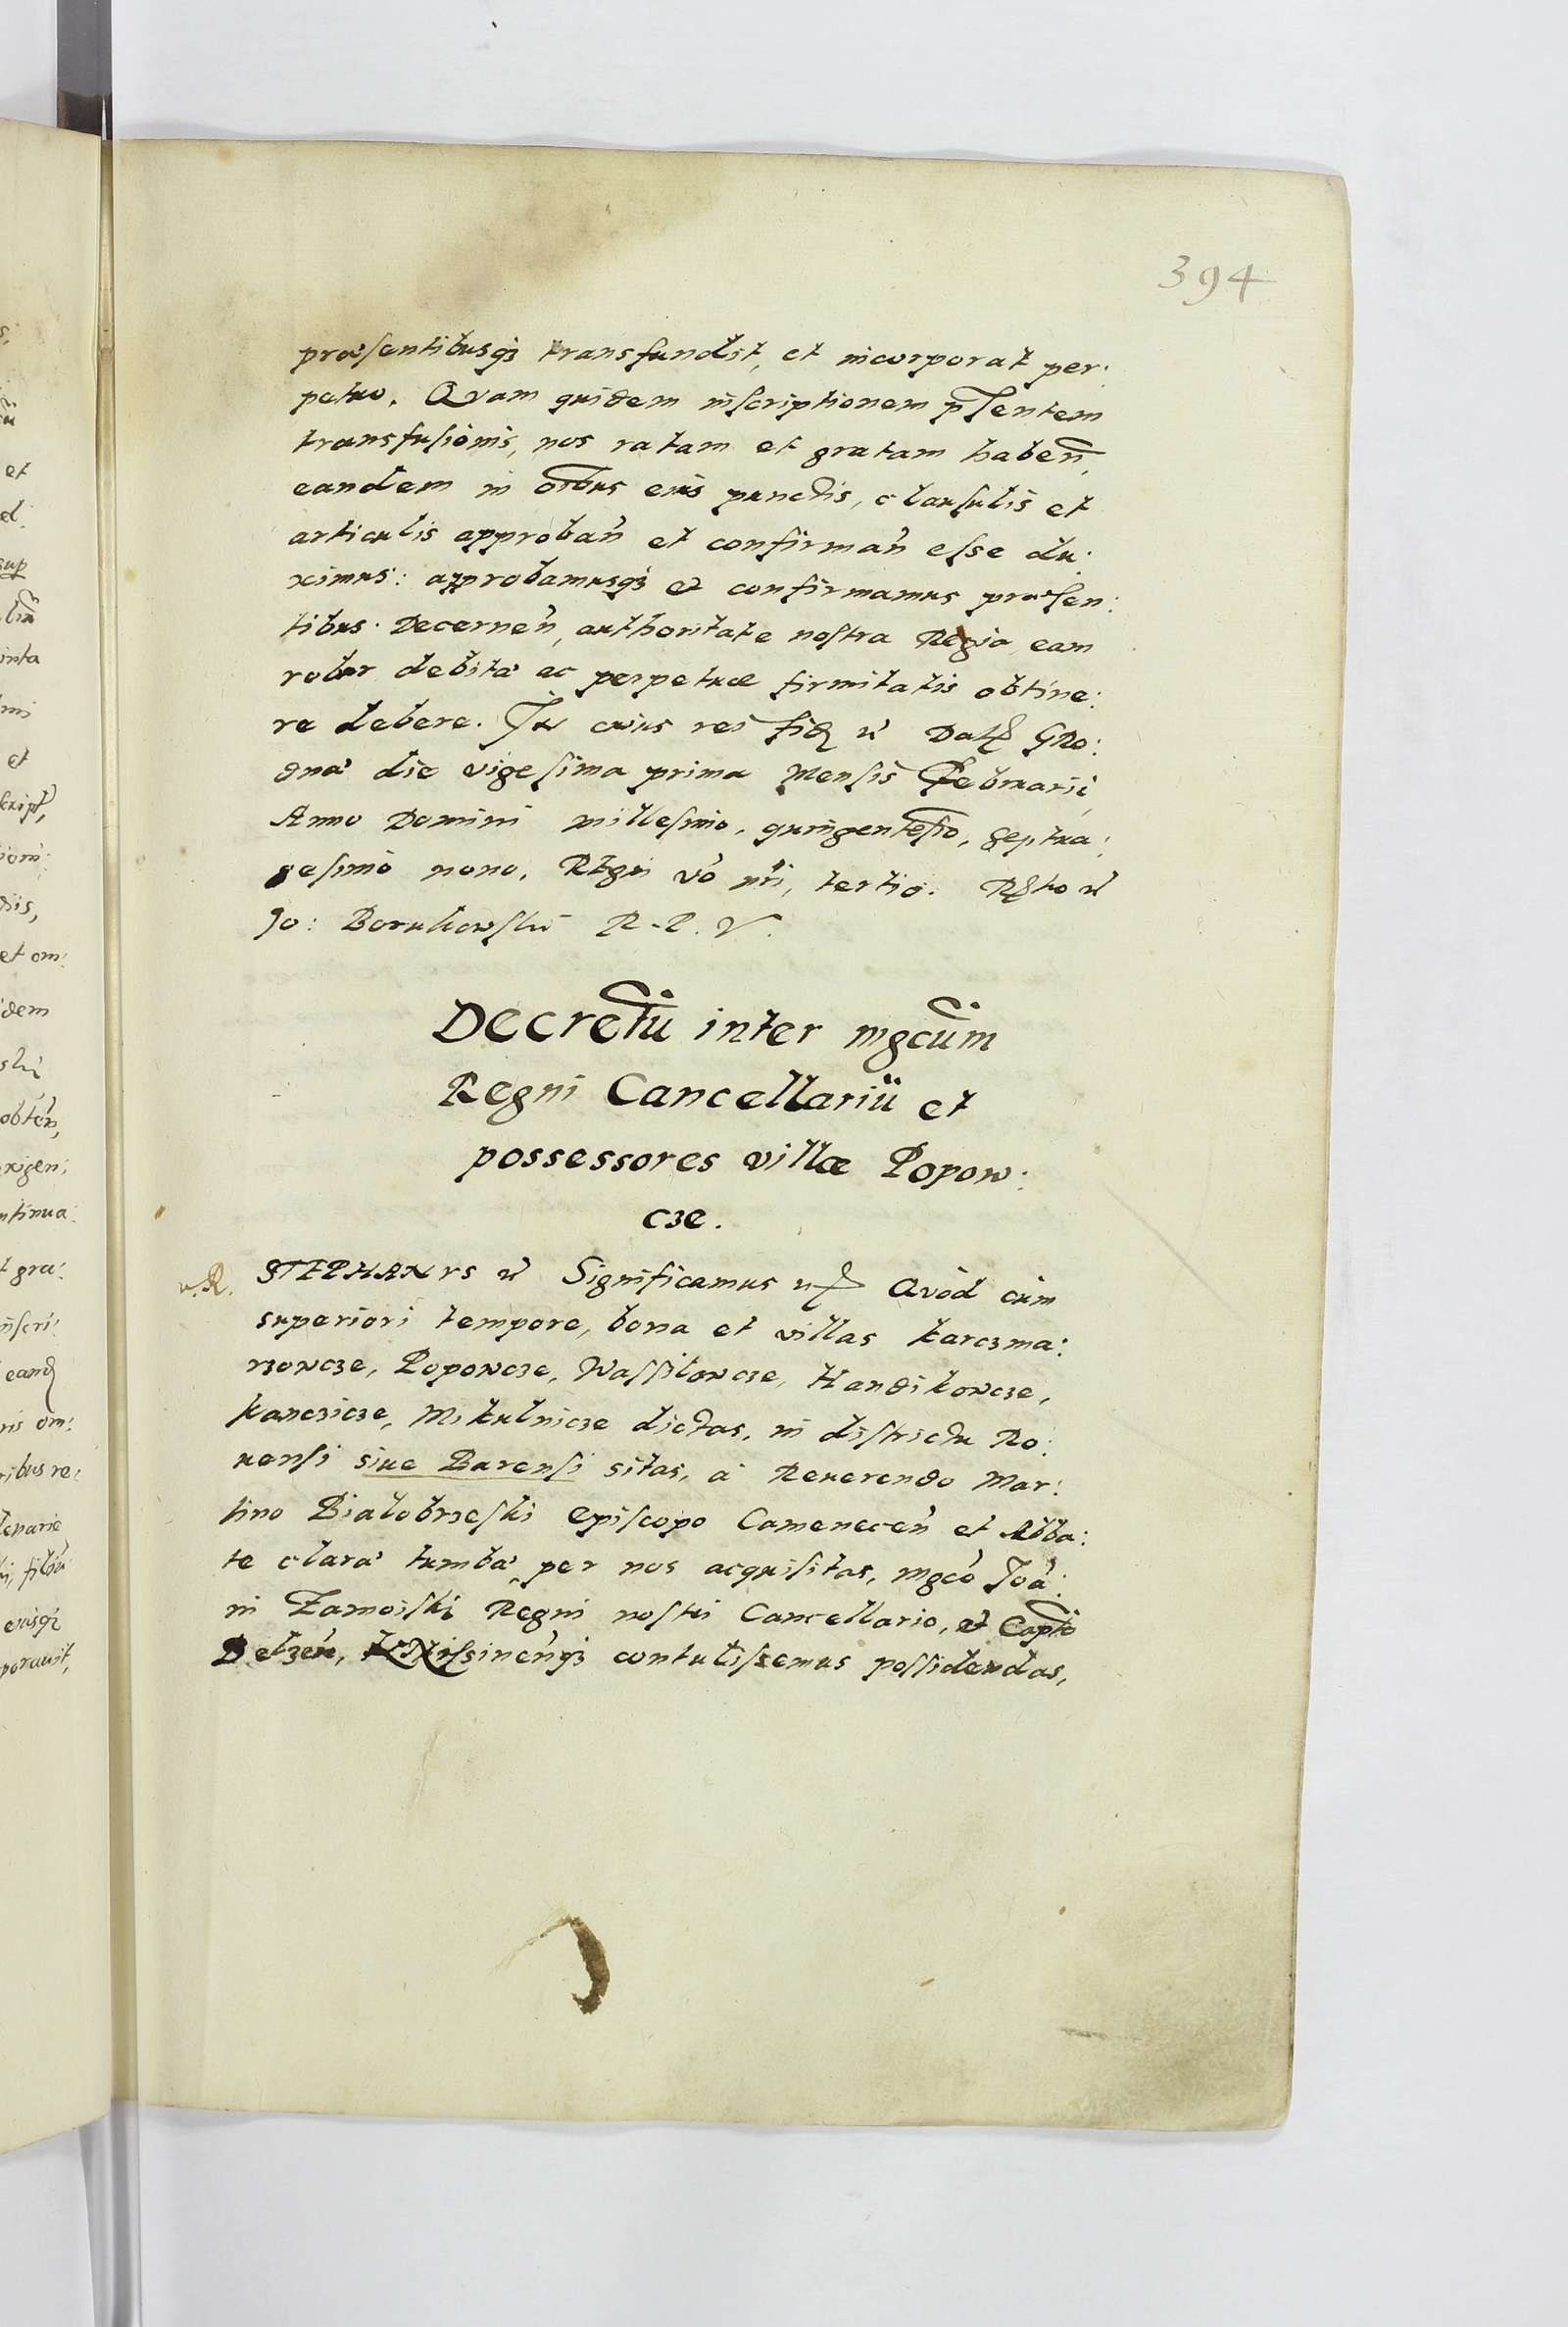 394
præsentibusq₃ transfundit, et incorporat per:
petuo. Quam quidem inscriptionem p̄sentem
transfusionis, nos ratam et gratam haben̄,
eandem in oībus eius punctis, clausulis et
articulis approban̄ et confirman̄ esse du:
ximus: approbamusq₃ et confirmamus præsen:
tibus. Decernen̄, authoritate nostra Regia eam
robur debitæ ac perpetuæ firmitatis obtine:
re debere. In cuius rei fid Dat Gro:
dnæ die vigesima prima Mensis Februarii,
Anno Domini millesimo, quingentesīo, septua:
gesimo nono, Regni vō nr̄i, tertio.
Jo: Borukowski R. P. V.
Decretū inter mgcūm
Regni Cancellariū et
possessores villæ Popow:
cze.
v. R. STEPHANVS Significamus Quod cum
superiori tempore, bona et villas karczma:
rzowcze, Popowcze, Wassilowcze, Handikowcze,
kanczicze, Mikulnicze dictas, in districtu Ro:
uensi siue Barensi sitas, à Reuerendo Mar:
tino Bialobrzeski Episcopo Camenecen̄ et Abba:
te claræ tumbæ per nos acquisitas, mgcō Joā:
ni Zamoiski Regni nostri Cancellario, et Capitō
Belzen̄, KNissinen̄q₃ contulissemus possidendas,
et
et
et om:
idem
obten̄,
xigen:
ntinua:
t gra:
ris om:
ribus re: